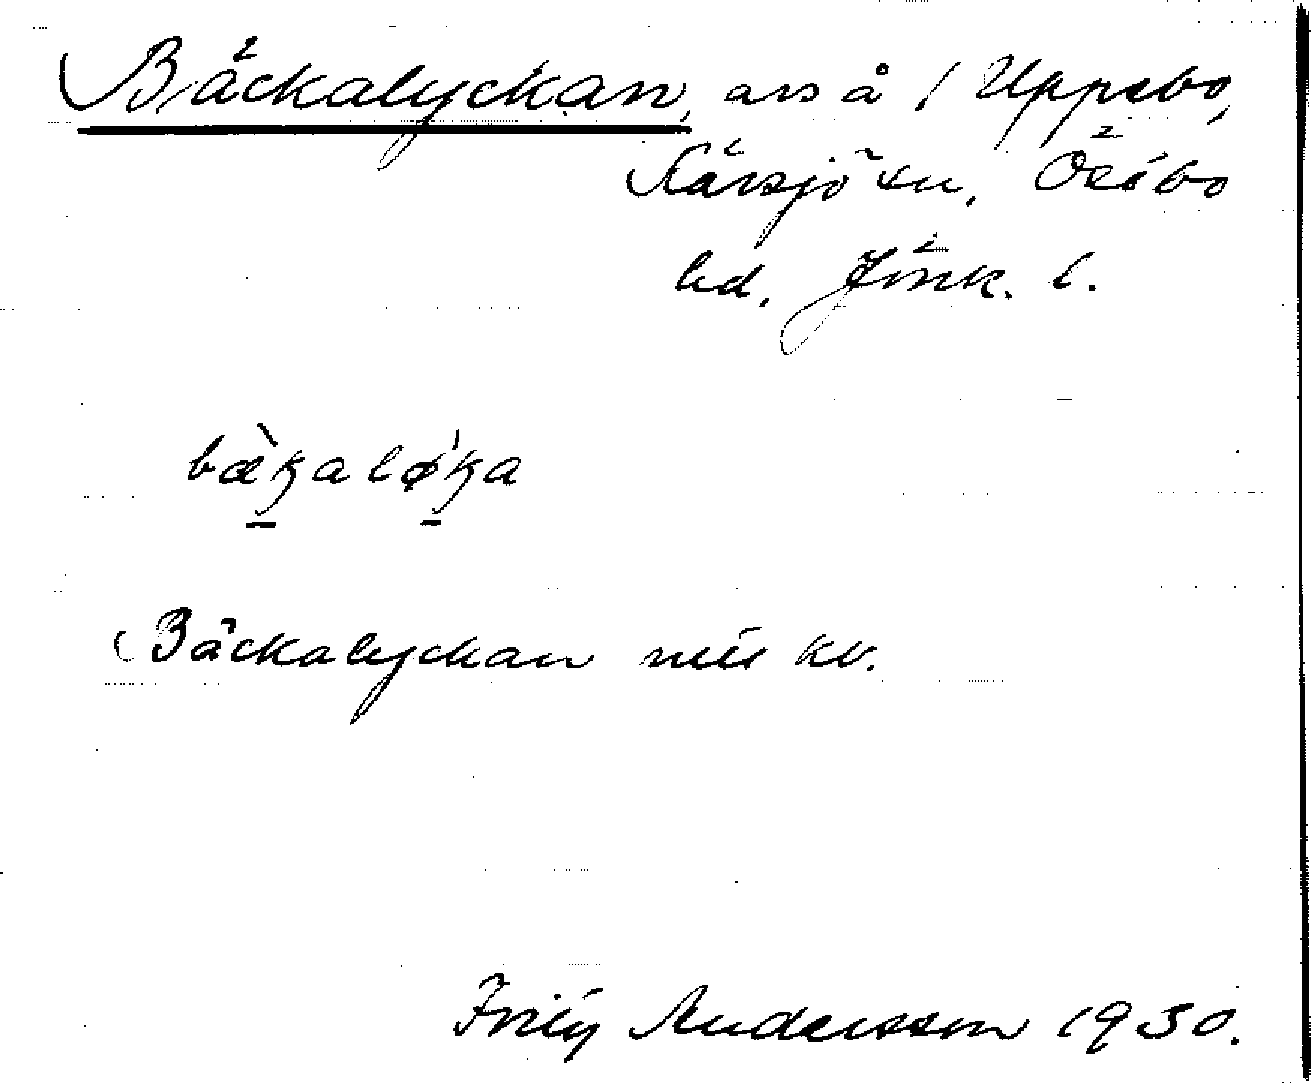 Bäckalyckan, ars å / Uppebo,
Kärsjö sn, Östbo
hd, Jönk. l.
bæ̀kalø̍ka
Bäckalyckan mir kv.
Fritif Andersson 1930.